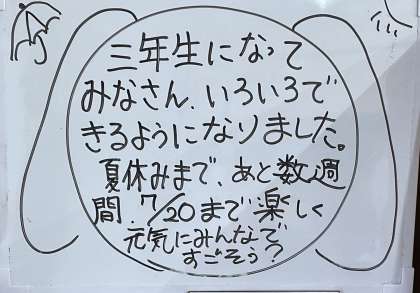 三年生になって
みなさん、いろいろで
きるようになりました。
夏休みまで、あと数週
間、7/20まで楽しく
元気にみんなで
すごそう?